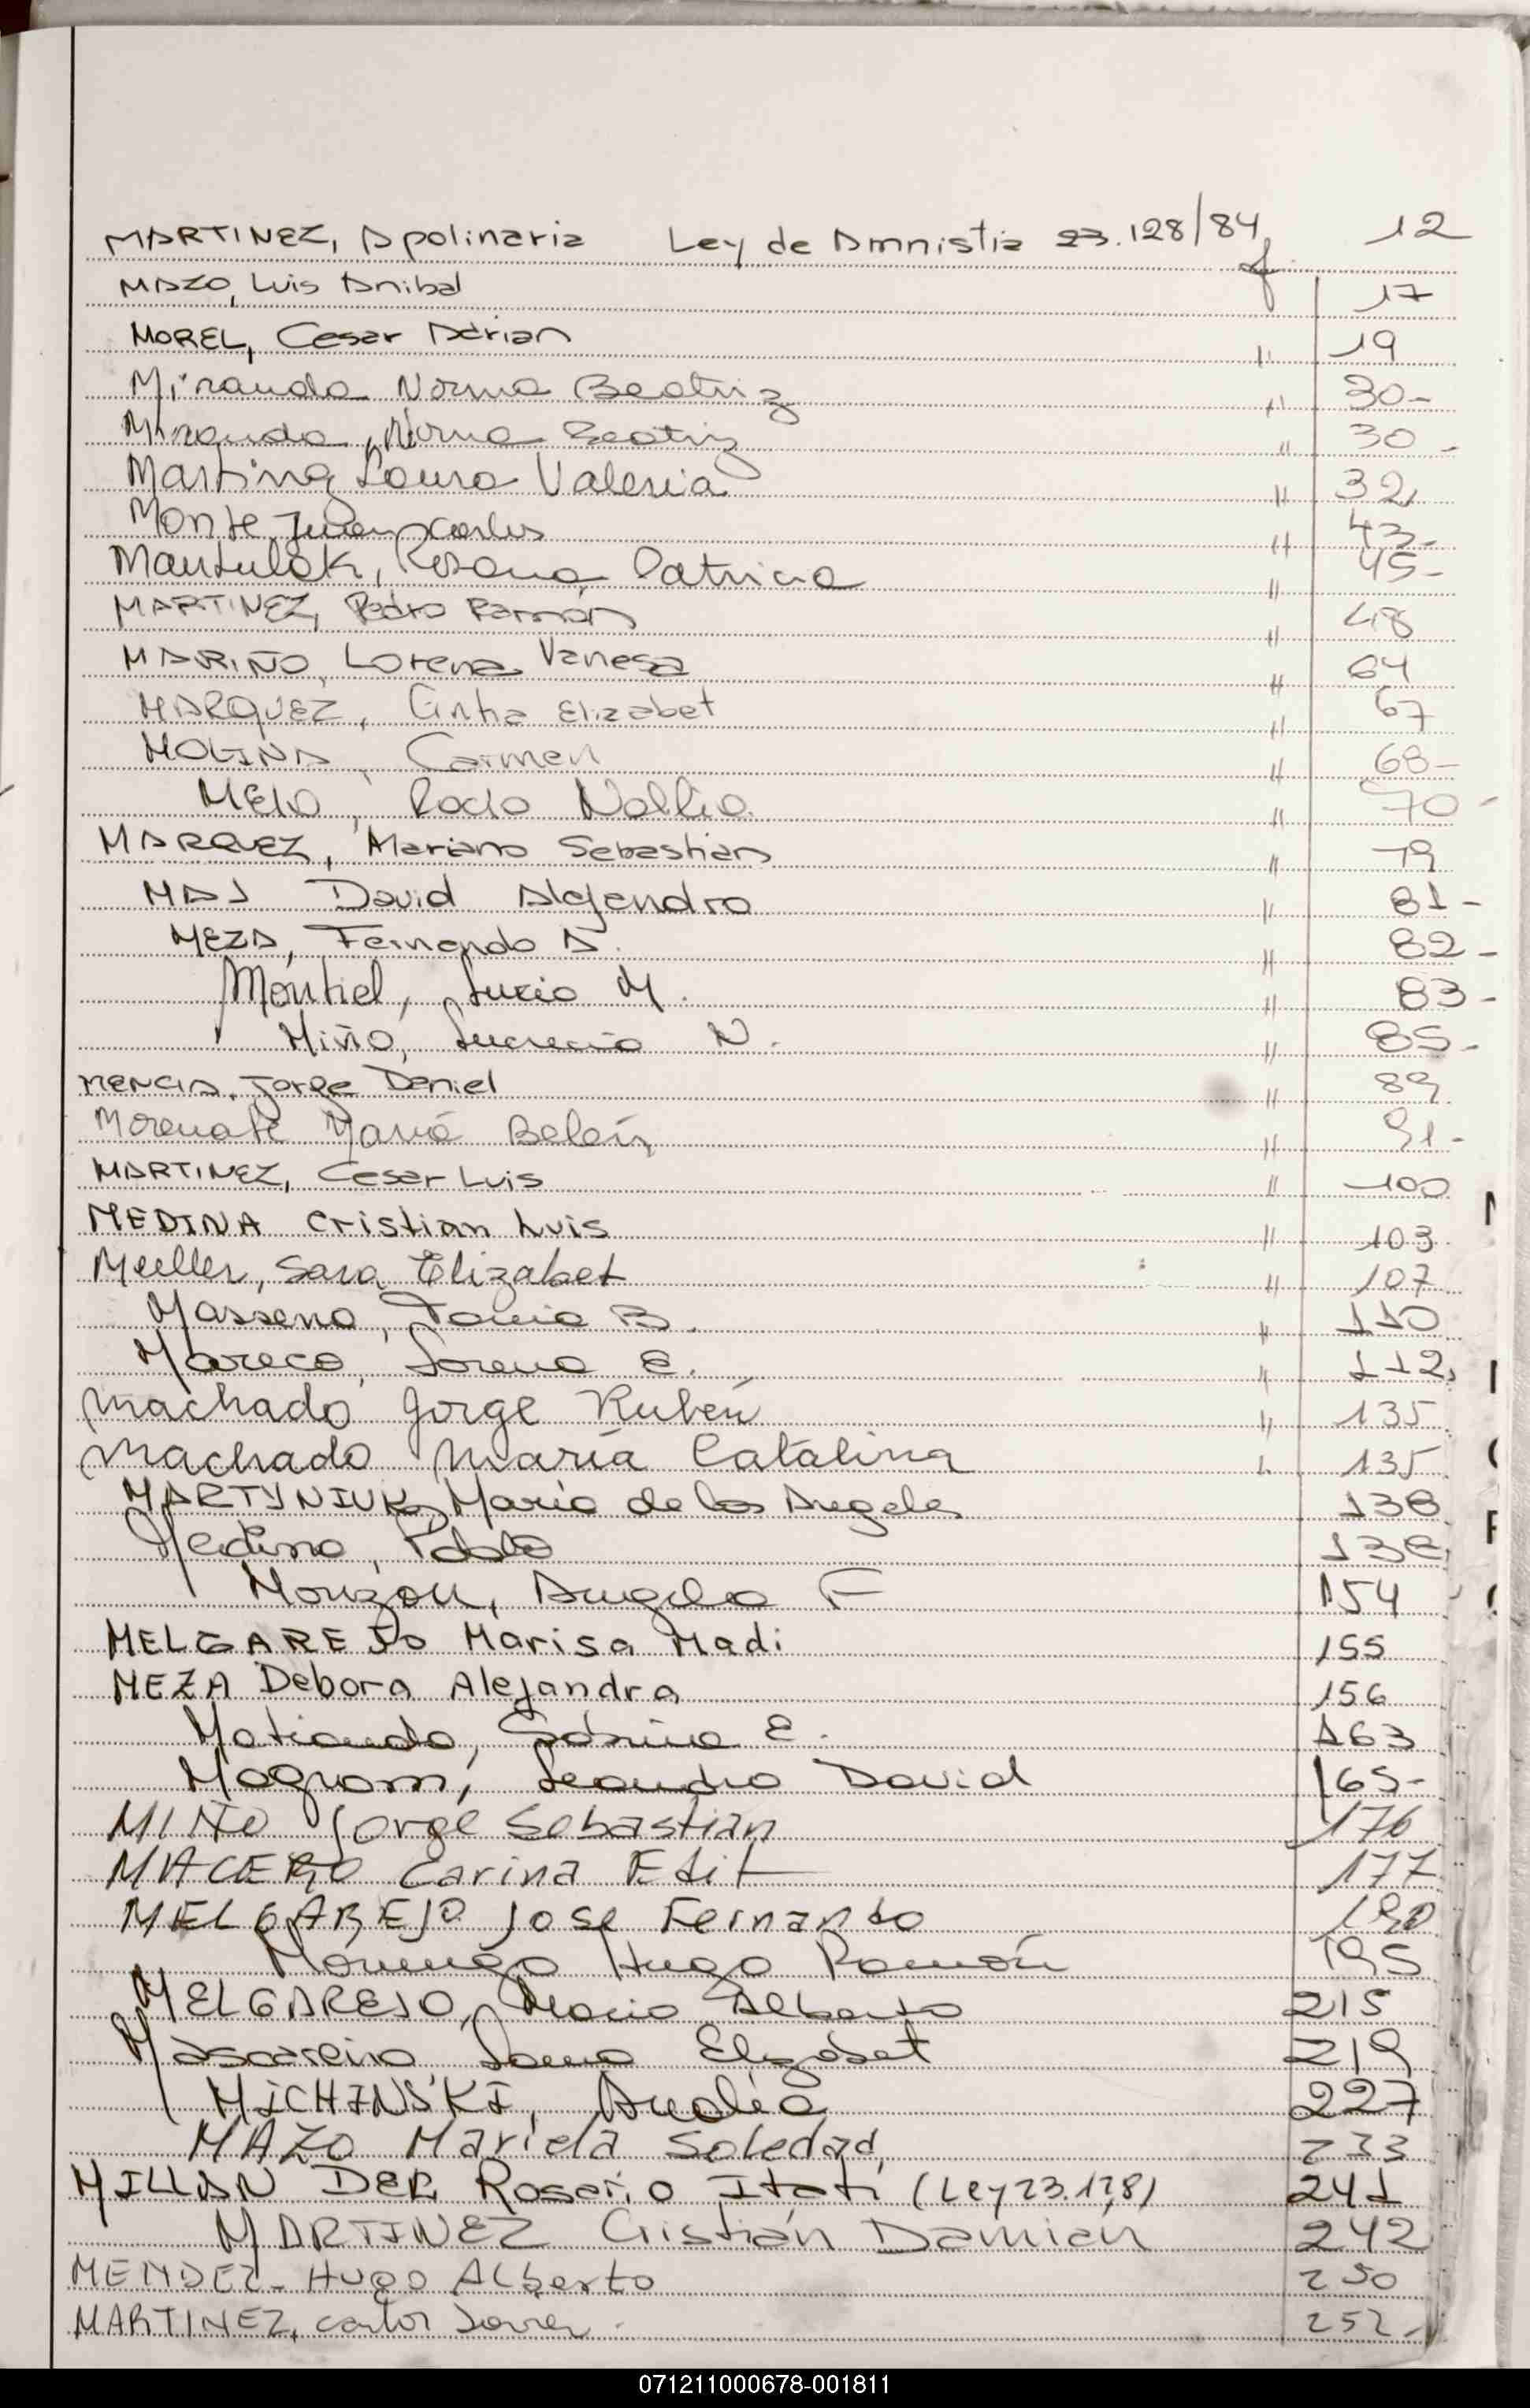 MARTINEZ, Apolinaria Ley de Amnistia 23.128/84 12
MAZO, Luis Anibal f 17
MOREL, Cesar Adrian " 19
Miranda Norma Beatriz " 30-
Miranda, Norma Beatriz " 30-
Martinez Laura Valeria " 32
Monte Juan Carlos " 43-
Mantulak, Rosana Patricia " 45-
MARTINEZ, Pedro Ramón " 48
MARIÑO, Lorena Vanesa " 64
MARQUEZ, Cintia Elizabet " 67
MOLINA, Carmen " 68-
MELO, Rocio Noelia " 70-
MARQUEZ, Mariano Sebastian " 79
MAJ David Alejandro " 81-
MEZA, Fernando A. " 82-
Montiel, Lucio M. " 83-
Miño, Lucrecia N. " 85-
MENCIA, Jorge Daniel " 89
María Belén " 91-
MARTINEZ, Cesar Luis " 100
MEDINA Cristian Luis " 103
Mueller, Sara Elizabet " 107
Masseno, Tania B. " 110
Mareco, Lorena E. " 112
Machado Jorge Rubén " 135
Machado María Catalina " 135
MARTYNIUK, María de los Angeles 138
Medina, Pablo
Monzón, Angela F 154
MELGAREJO Marisa Madi 155
MEZA Debora Alejandra 156
Matiauda, Sabrina E. 163
Magnoni, Leandro David 165-
MIÑO Jorge Sebastián 176
MACERO Carina Edit 177
MELGAREJO Jose Fernando
Hugo Ramón 195
MELGAREJO, Mario Alberto 215
Mascareño Elizabet 219
MICHINSKI, Analia 227
MAZO Mariela Soledad 233
MILLAN DER Rosario Itati (Ley 23.128) 241
MARTINEZ Cristián Damián 242
MENDEZ- Hugo Alberto 250
MARTINEZ, Carlos Javier. 252-
071211000678-001811